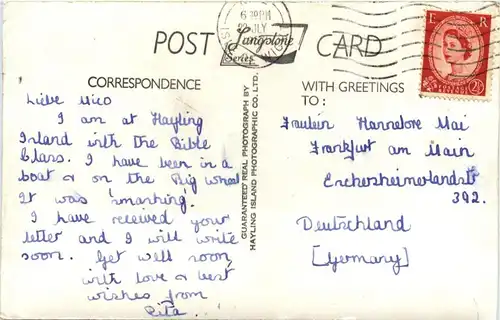 6 30 PM
JULY
POST CARD
Langstone
Series
E R
2½
CORRESPONDENCE
WITH GREETINGS
TO:
GUARANTEED REAL PHOTOGRAPH BY
HAYLING ISLAND PHOTOGRAPHIC CO. LTD.
Liebe Mico
I am at Hayling
Island with the Bible
Class. I have been in a
boat & on the Big wheel
It was 'smashing'.
I have received your
letter and I will write
soon. Get well soon
with love & best
wishes from
Rita...
Fraulein Hannelore Mai
Frankfurt am Main
Eschersheimerlandstr
392.
Deutschland
[Germany]